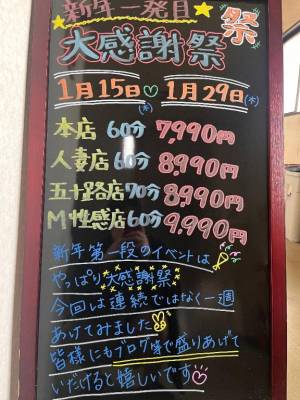 新年一発目
祭
大感謝祭
1月15日(木)♡1月29日(木)
本店 60分 7,990円
人妻店 60分 8,990円
五十路店 70分 8,990円
M性感店 60分 9,990円
新年第一段のイベントは
やっぱり大感謝祭
今回は連続ではなく一週
あけてみました
皆様にもブログ等で盛りあげて
いただけると嬉しいです♡